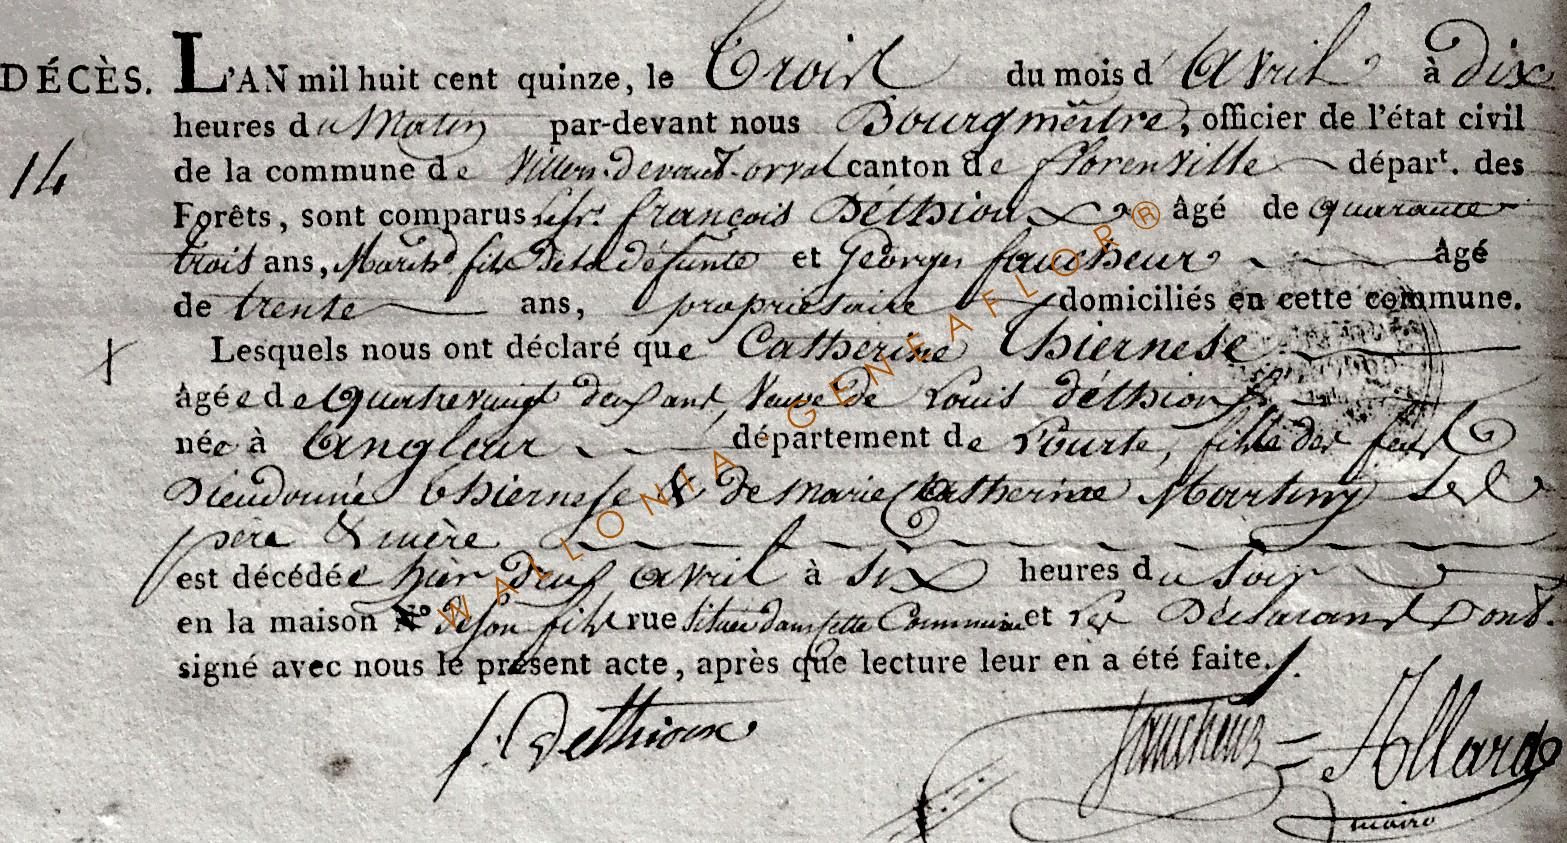 DÉCÈS. L'AN mil huit cent quinze, le Trois du mois d'Avril à dix
heures du Matin par-devant nous Bourgmêitre, officier de l'état civil
14 de la commune de Villers-devant-orval canton de florenville dépar<sup>t</sup>. des
Forêts, sont comparus le sr. françois Déthioux âgé de quarante
trois ans, March<sup>d</sup> fils de la défunte et Georges faucheur âgé
de trente ans, propriétaire domiciliés en cette commune.
X Lesquels nous ont déclaré que Catherine Thiernese
âgée de Quatrevingt deux ans, Veuve de Louis déthioux
née à Angleur département de Lourte, fille des feux
Dieudonné Thiernese & de Marie Catherine Martiny ses
père & mère
est décédée hier deux avril à six heures du soir
en la maison N° de son fils rue située dans cette Commune et les Déclarants Dont.
signé avec nous le présent acte, après que lecture leur en a été faite./.
f. Dethioux faucheur Allard
maire
WALLONIA GENEAFLOR®